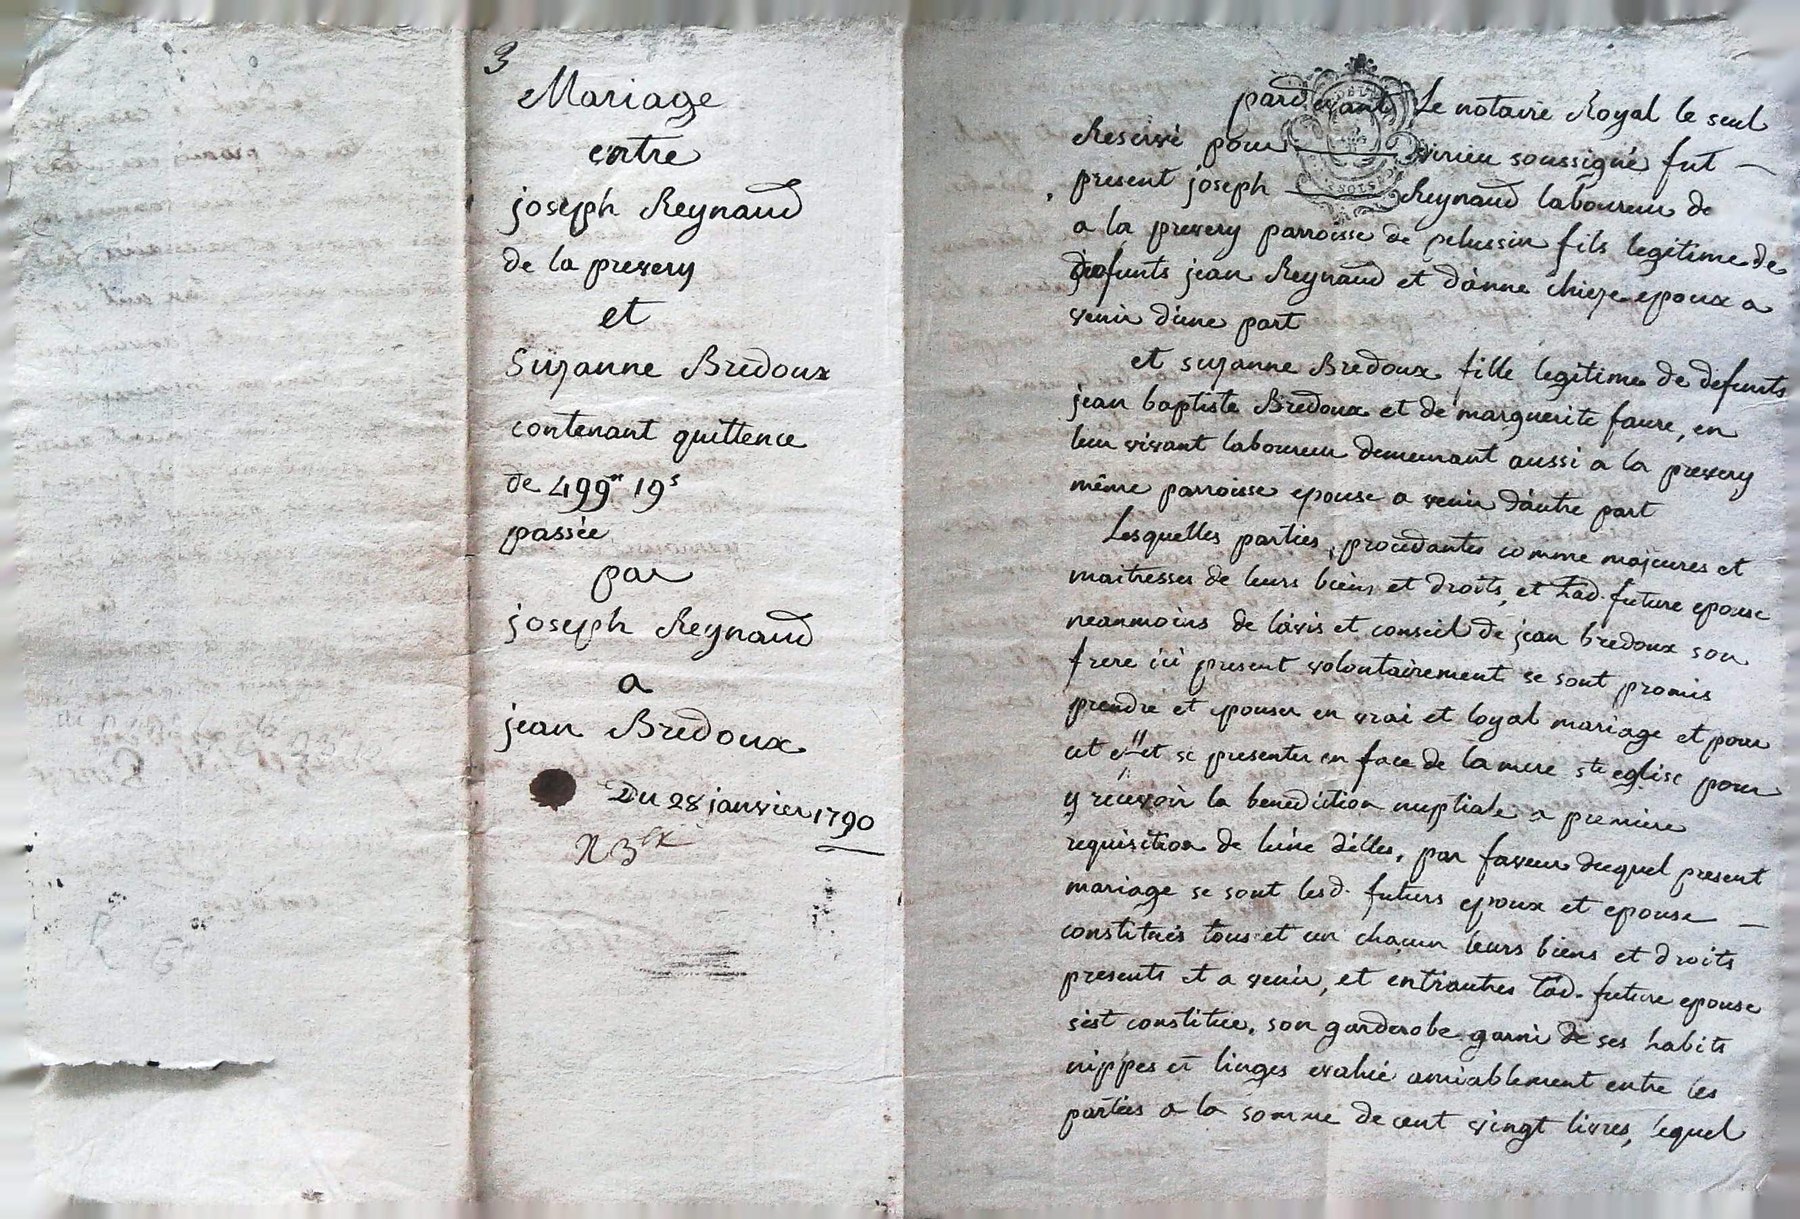 3
Mariage
entre
joseph Reynaud
de la prevery
et
Suzanne Bredoux
contenant quittence
de 499# 19s
passée
par
joseph Reynaud
a
jean Bredoux
Du 28 janvier 1790
pardevant Le notaire Royal le seul
Reservé pour virieu soussigné fut
present joseph Reynaud laboureur de
a la prevery parroisse de pelussin fils legitime de
defunts jean Reynaud et d'anne chieze epoux a
venir d'une part
et suzanne Bredoux fille legitime de defunts
jean baptiste Bredoux et de marguerite faure, en
leur vivant laboureur demeurant aussi a la prevery
même parroisse epouse a venir d'autre part
Lesquelles parties, procedantes comme majeures et
maitresses de leurs biens et droits, et Lad. future epouse
neanmoins de l'avis et conseil de jean bredoux son
frere ici present volontairement se sont promis
prendre et epouser en vrai et loyal mariage et pour
cet effet se presenter en face de la mere ste eglise pour
y recevoir la benediction nuptiale a premiere
requisition de l'une d'elles, par faveur duquel present
mariage se sont lesd. futurs epoux et epouse
constitués tous et un chacun leurs biens et droits
presents et a venir, et entr'autres lad. future epouse
s'est constituée, son garderobe garni de ses habits
nippes et linges evalué amiablement entre les
parties a la somme de cent vingt livres, lequel